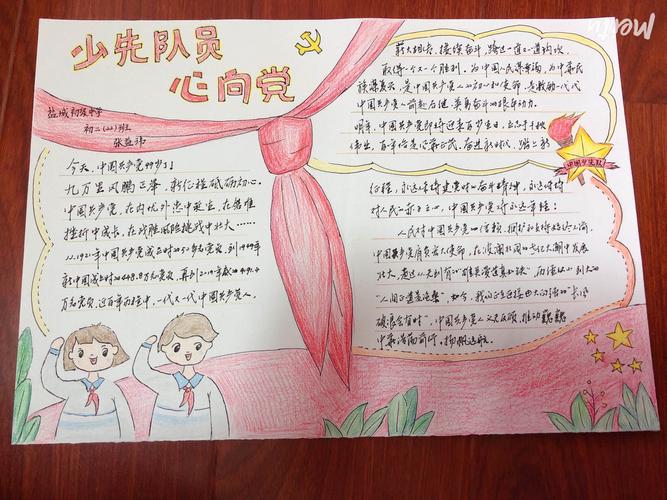 少先队员
心向党
盐城初级中学
初二(22)班
今天，中国共产党99岁了！
九万里风鹏正举，新征程砥砺初心。
中国共产党，在内忧外患中诞生，在磨难
挫折中成长，在战胜风险挑战中壮大……
从1921年中国共产党成立时的50多名党员，到1949年
新中国成立时的448.8万名党员，再到2019年底的9191.4
万名党员，这百年历程中，一代又一代中国共产党人，
薪火相传，接续奋斗，跨过一道又一道沟坎，
取得一个又一个胜利。为中国人民谋幸福，为中华民
族谋复兴，是中国共产党人的初心和使命，是激励一代代
中国共产党人前赴后继、英勇奋斗的根本动力。
明年，中国共产党即将迎来百岁生日，
伟业，百年恰是风华正茂，奋进新时代，踏上新
中国少年先
征程，永远保持建党时的奋斗精神，永远保持
对人民的赤子之心，中国共产党将永远年轻！
人民对中国共产党的信赖
中国共产党肩负着大使命，在波澜壮阔的世纪大潮中发展
壮大，走过从无到有的"雄关漫道真如铁"，而活从小到大的
"人间正道是沧桑"，如今，我们正在迎接由大向强的"长风
破浪会有时"，中国共产党人义无反顾，推动巍巍
中华浩荡前行，扬帆远航